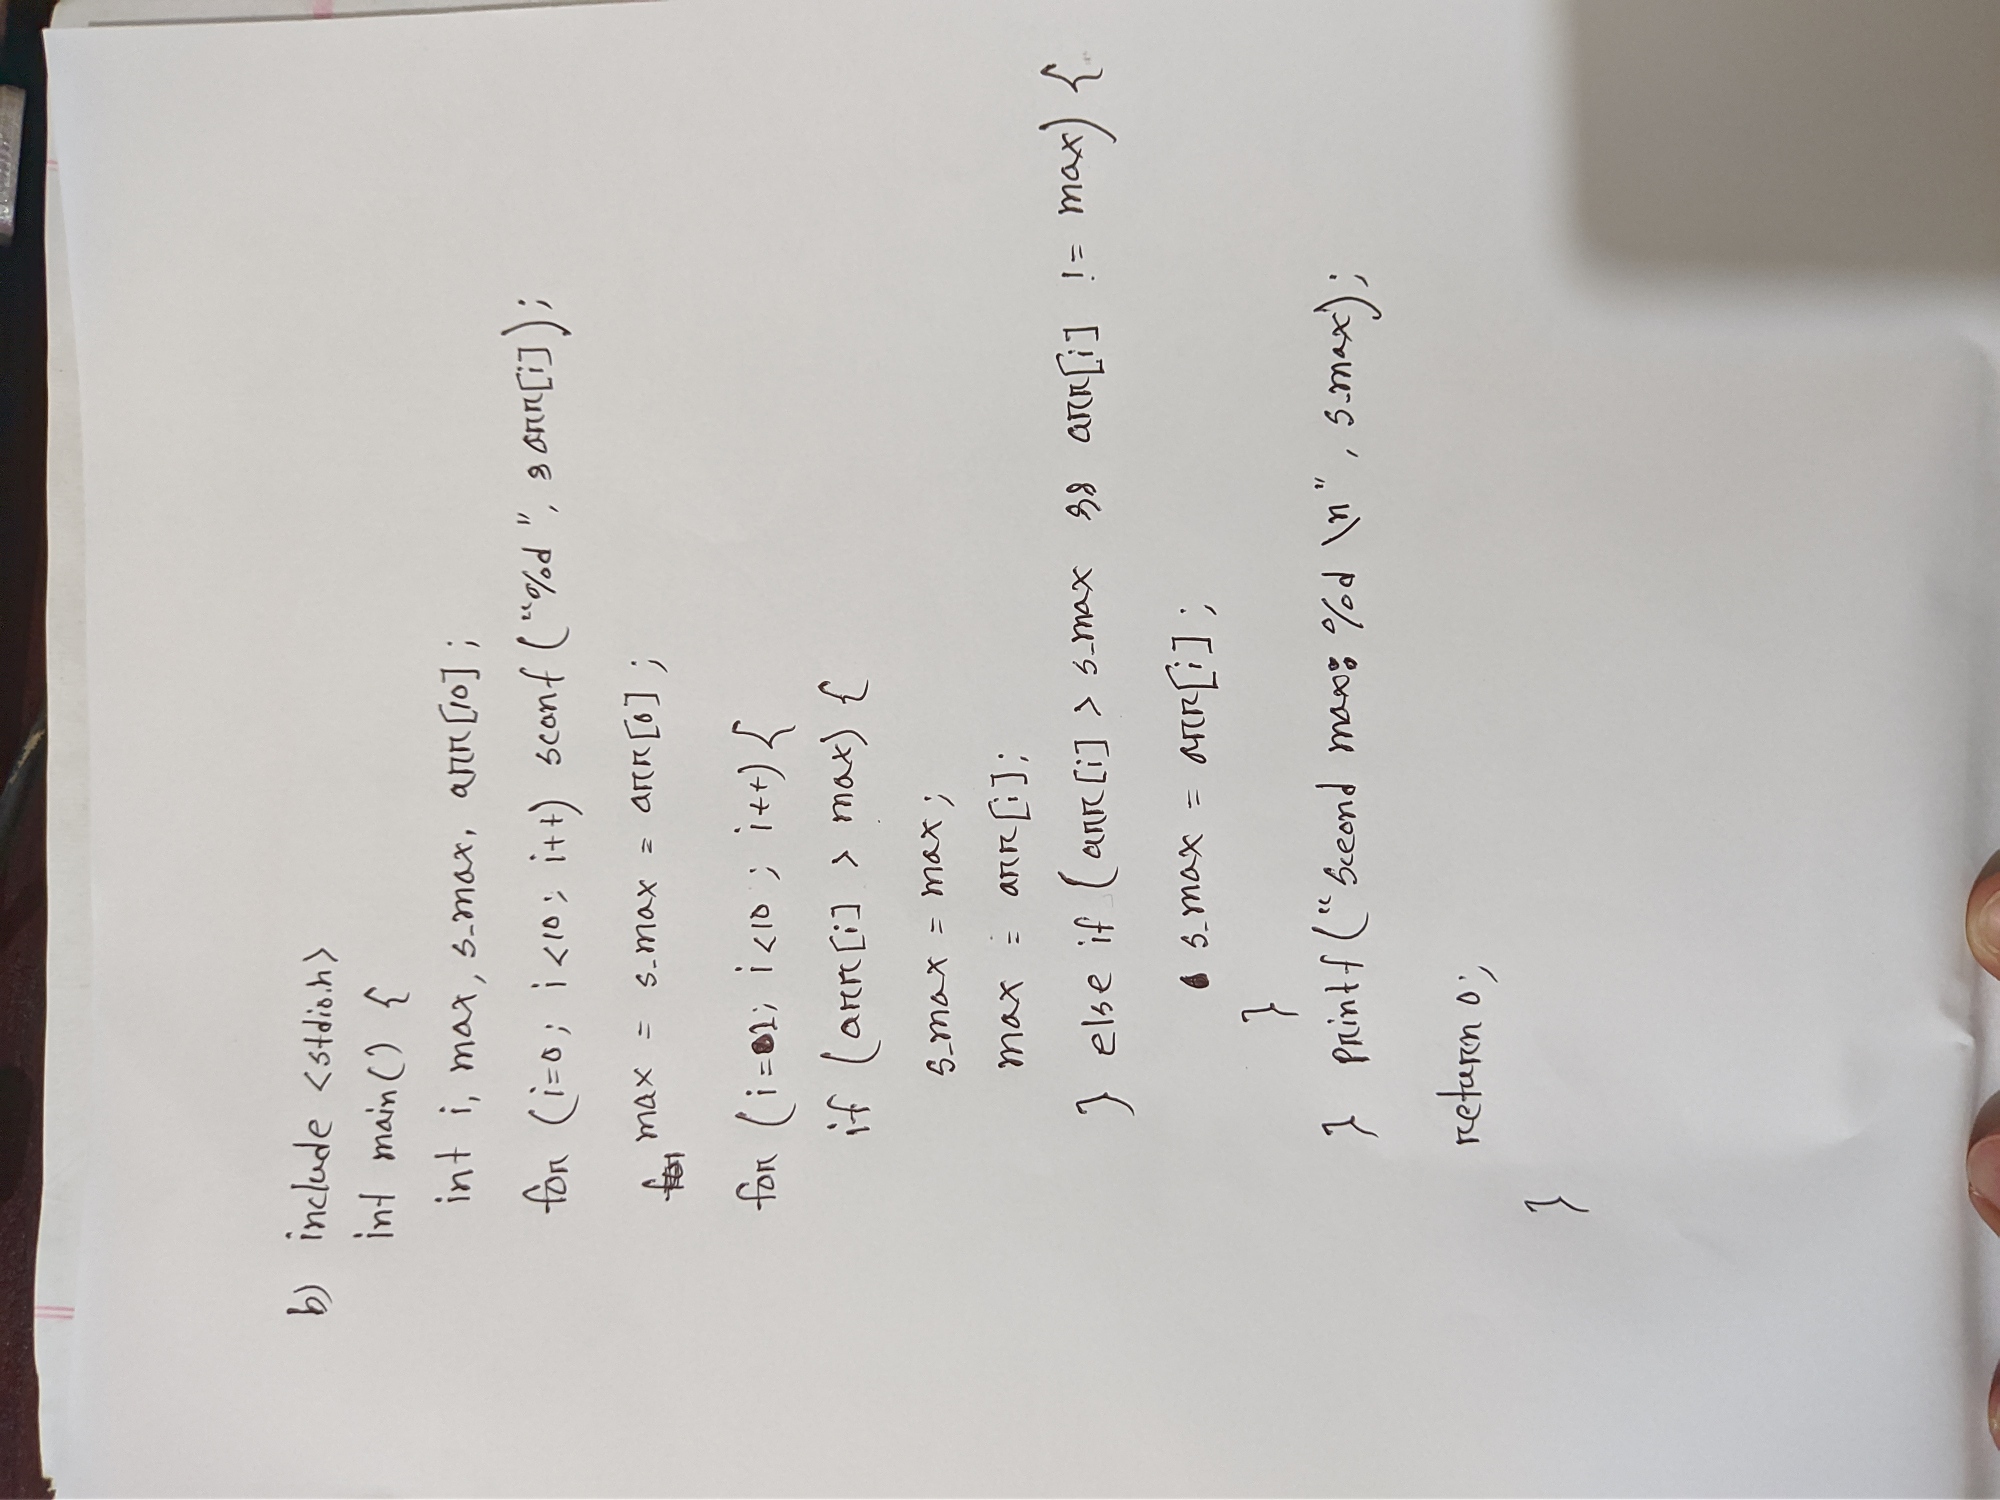 b) include <stdio.h>
int main() {
int i, max, s_max, arr[10];
for (i=0; i<10; i++) scanf ("%d", &arr[i]);
max = s_max = arr[0];
for (i=1; i<10; i++) {
if (arr[i] > max) {
s_max = max;
max = arr[i];
} else if (arr[i] > s_max && arr[i] != max) {
s_max = arr[i];
}
} printf ("Second max: %d \n", s_max);
return 0;
}